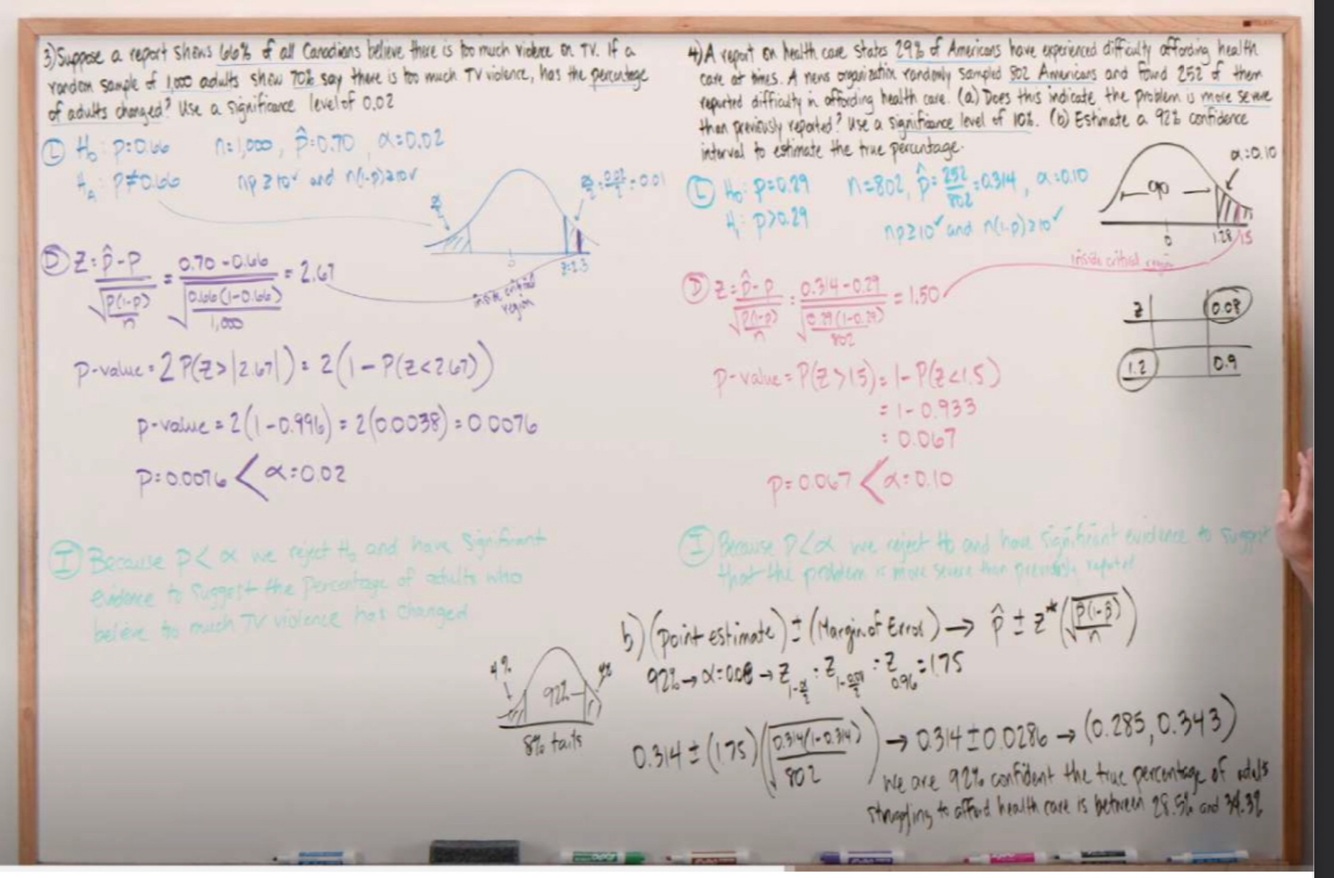 3) Suppose a report shows 66% of all Canadians believe there is too much violence on TV. If a
random sample of 1,000 adults show 70% say there is too much TV violence, has the percentage
of adults changed? Use a significance level of 0.02
I H₀: p=0.66 n=1,000, p̂=0.70, α=0.02
Hₐ: p≠0.66 np≥10✓ and n(1-p)≥10✓
α/2
α/2 = 0.02/2 = 0.01
0
z=2.3
inside critical
region
D Z = (p̂-p)/√(p(1-p)/n) = (0.70-0.66)/√(0.66(1-0.66)/1,000) = 2.67
p-value = 2P(Z>|2.67|) = 2(1-P(Z<2.67))
p-value = 2(1-0.996) = 2(0.0038) = 0.0076
p=0.0076 < α=0.02
I Because P<α we reject H₀ and have significant
evidence to suggest the percentage of adults who
believe too much TV violence has changed
4) A report on health care states 29% of Americans have experienced difficulty affording health
care at times. A news organization randomly sampled 802 Americans and found 252 of them
reported difficulty in affording health care. (a) Does this indicate the problem is more severe
than previously reported? Use a significance level of 10%. (b) Estimate a 92% confidence
interval to estimate the true percentage.
I H₀: p=0.29 n=802, p̂=252/802=0.314, α=0.10
H₁: p>0.29 np≥10✓ and n(1-p)≥10✓
α=0.10
.90
0 1.28 1.5
inside critical region
D Z = (p̂-p)/√(p(1-p)/n) = (0.314-0.29)/√(0.29(1-0.29)/802) = 1.50
z 0.08
1.2 0.9
p-value = P(Z>1.5) = 1-P(Z<1.5)
= 1-0.933
= 0.067
p=0.067 < α=0.10
I Because P<α we reject H₀ and have significant evidence to suggest
that the problem is more severe than previously reported
b) (point estimate) ± (Margin of Error) → p̂ ± z*(√(p̂(1-p̂)/n))
92% → α=0.08 → Z₁₋α/₂ = Z₁₋₀.₀₈/₂ = Z₀.₉₆ = 1.75
4% 92% 4%
8% tails
0.314 ± (1.75)(√(0.314(1-0.314)/802)) → 0.314 ± 0.0286 → (0.285, 0.343)
We are 92% confident the true percentage of adults
struggling to afford health care is between 28.5% and 34.3%